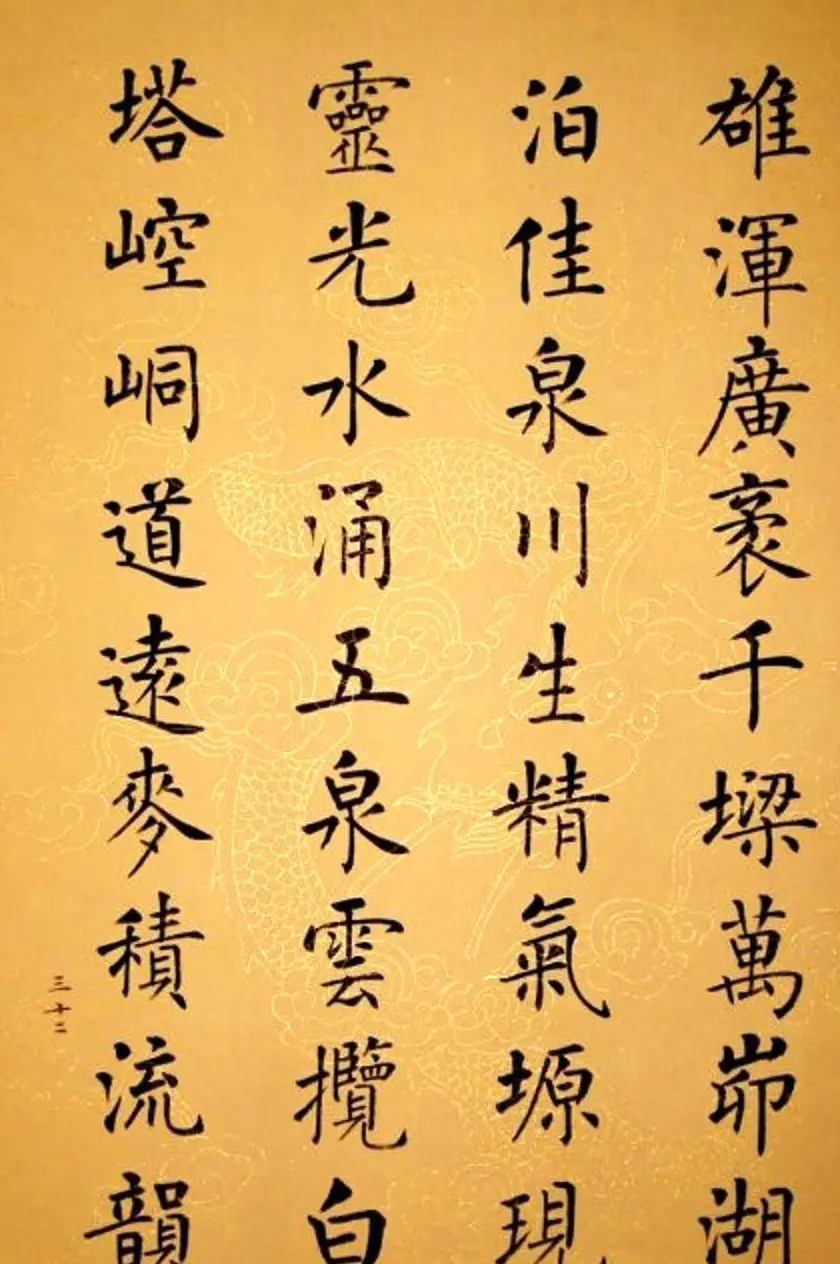 雄渾廣袤千墚萬峁湖
泊佳泉川生精氣塬現
靈光水涌五泉雲攬白
塔崆峒道遠麥積流韻
三十二